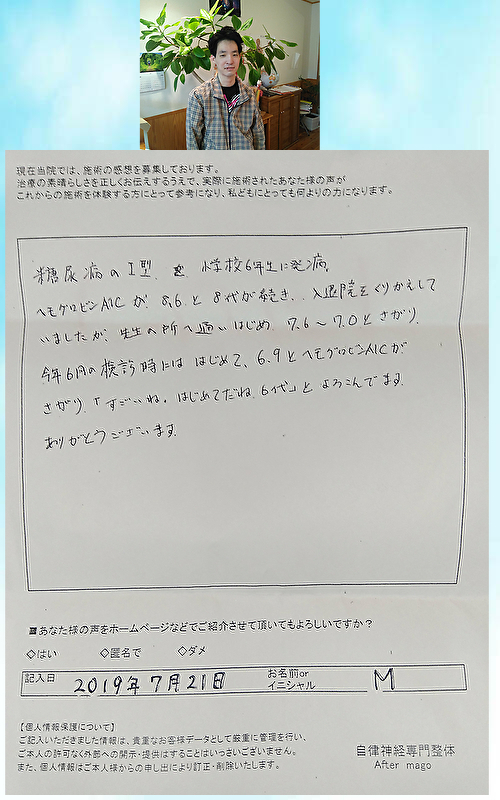 現在当院では、施術の感想を募集しております。
治療の素晴らしさを正しくお伝えするうえで、実際に施術されたあなた様の声が
これからの施術を体験する方にとって参考になり、私どもにとっても何よりの力になります。
糖尿病のI型を 小学校6年生に発病。
ヘモグロビンA1Cが 8.6と 8代が続き、入退院をくりかえして
いましたが、先生の所へ通いはじめ 7.6〜7.0とさがり、
今年6月の検診時には はじめて、6.9とヘモグロビンA1Cが
さがり、「すごいね。はじめてだね。6代」と よろこんでます。
ありがとうございます。
■あなた様の声をホームページなどでご紹介させて頂いてもよろしいですか？
◇はい ◇匿名で ◇ダメ
記入日 2019年7月21日 お名前or
イニシャル M
【個人情報保護について】
ご記入いただきました情報は、貴重なお客様データとして厳重に管理を行い、
ご本人の許可なく外部への開示・提供はすることはいっさいございません。
また、個人情報はご本人様からの申し出により訂正・削除いたします。
自律神経専門整体
After mago